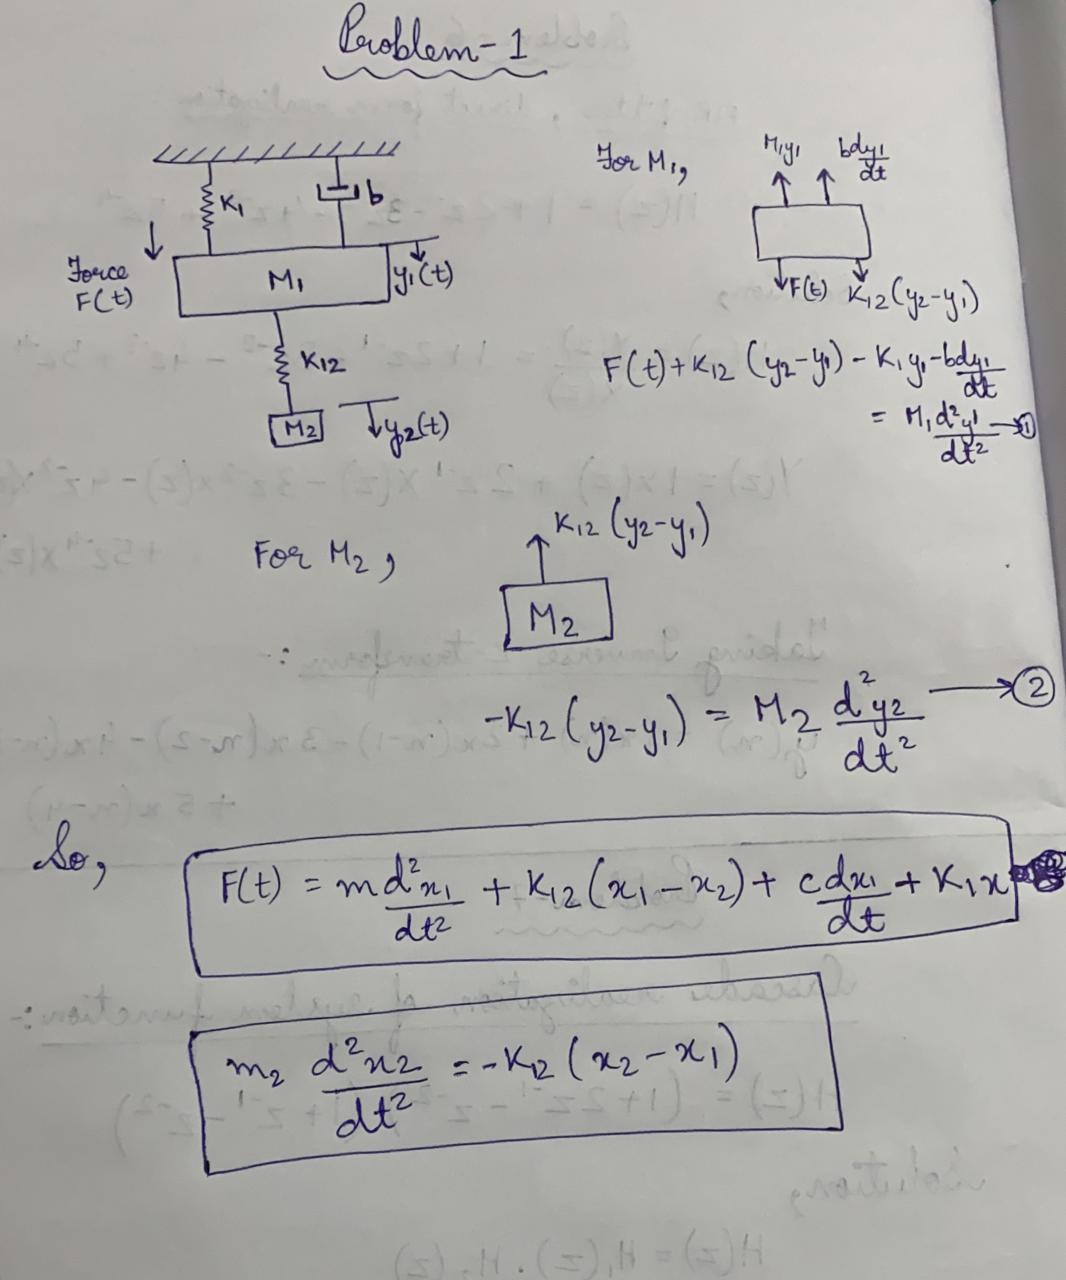 Problem-1
K1
b
Force
F(t)
M1
y1(t)
K12
M2
y2(t)
For M1,
M1y1
bdy1/dt
F(t)
K12(y2-y1)
F(t)+K12 (y2-y1) - K1y1-bdy1/dt
= M1d²y1/dt² → ①
For M2,
K12 (y2-y1)
M2
-K12 (y2-y1) = M2 d²y2/dt² → ②
So,
F(t) = m d²x1/dt² + K12 (x1-x2) + c dx1/dt + K1x
m2 d²x2/dt² = -K12 (x2-x1)